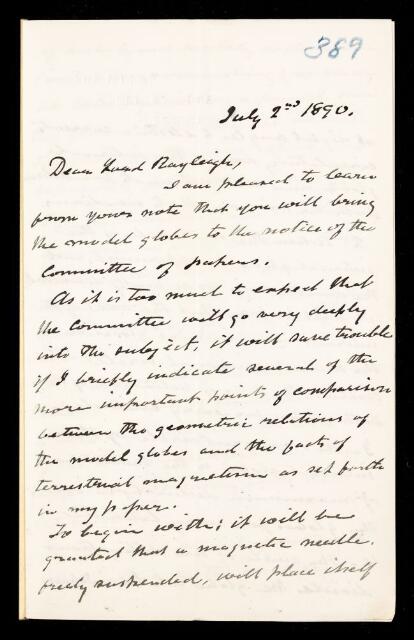 389
July 2nd 1890.
Dear Lord Rayleigh,
I am pleased to learn
from your note that you will bring
the model globes to the notice of the
Committee of papers.
As it is too much to expect that
the Committee will go very deeply
into the subject, it will save trouble
if I briefly indicate several of the
more important points of comparison
between the geometric relations of
the model globes and the facts of
terrestrial magnetism as set forth
in my paper.
To begin with; it will be
granted that a magnetic needle,
freely suspended, will place itself